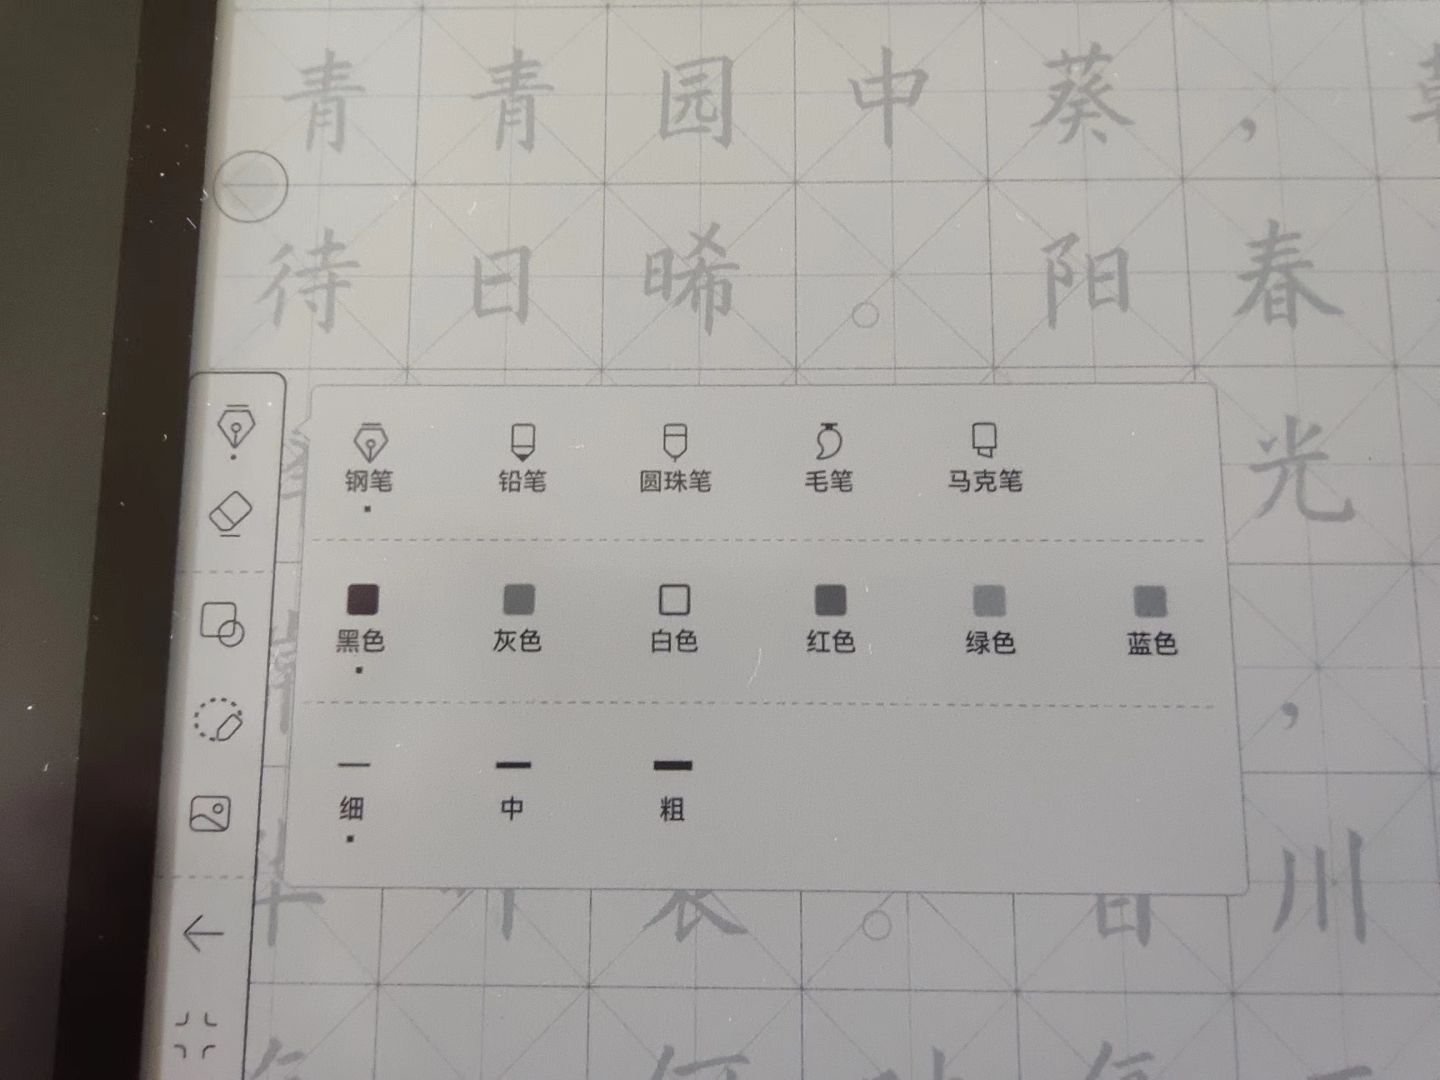 青青园中葵，
待日晞。阳春
光
钢笔 铅笔 圆珠笔 毛笔 马克笔
黑色 灰色 白色 红色 绿色 蓝色
，
细 中 粗
。 川